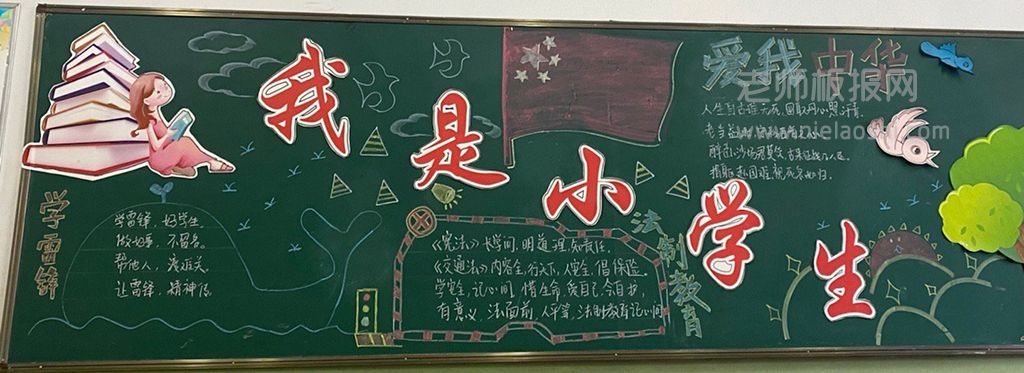 我是小学生
学雷锋
学雷锋，好学生
做好事，不留名。
帮他人，渡难关。
让雷锋，精神传。
《宪法》长学问，明道理，负责任。
《交通法》内容全，行天下，人安全，倡保险。
学安全，记心间，惜生命，我自己，会自救，
有意义，法面前，人平等，法制教育记心间
法制教育
爱我中华
人生自古谁无死，留取丹心照汗青。
醉卧沙场君莫笑，古来征战几人回。
捐躯赴国难，视死忽如归。
老师板报网